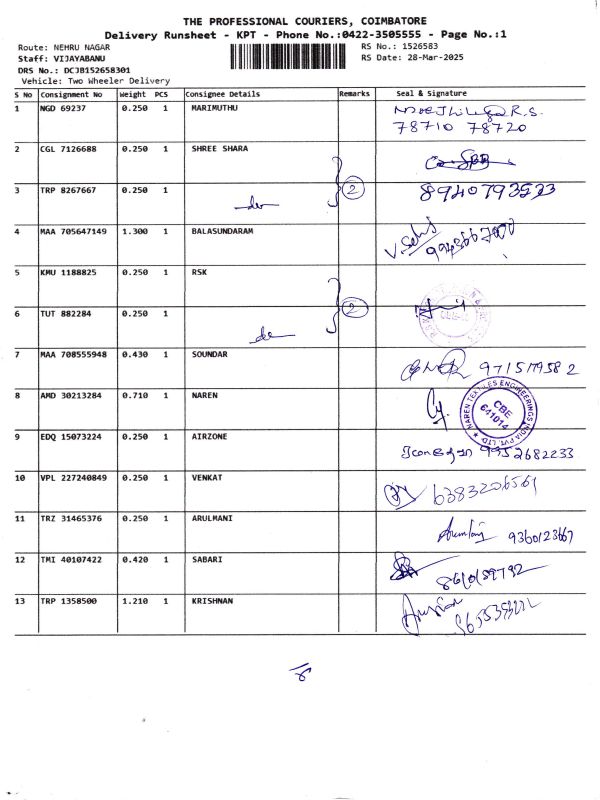 THE PROFESSIONAL COURIERS, COIMBATORE
Delivery Runsheet - KPT - Phone No.:0422-3505555 - Page No.:1
Route: NEHRU NAGAR
RS No.: 1526583
Staff: VIJAYABANU
RS Date: 28-Mar-2025
DRS No.: DCJB152658301
Vehicle: Two Wheeler Delivery
S No Consignment No Weight PCS Consignee Details Remarks Seal & Signature
1 NGD 69237 0.250 1 MARIMUTHU
78710 78720
2 CGL 7126688 0.250 1 SHREE SHARA
3 TRP 8267667 0.250 1 2
4 MAA 705647149 1.300 1 BALASUNDARAM
5 KMU 1188825 0.250 1 RSK
6 TUT 882284 0.250 1 2
7 MAA 708555948 0.430 1 SOUNDAR
8 AMD 30213284 0.710 1 NAREN
NAREN TEXTILES ENGINEERINGS INDIA PVT. LTD.
CBE
641014
9 EDQ 15073224 0.250 1 AIRZONE
9352682233
10 VPL 227240849 0.250 1 VENKAT
6383206561
11 TRZ 31465376 0.250 1 ARULMANI
9360123667
12 TMI 40107422 0.420 1 SABARI
13 TRP 1358500 1.210 1 KRISHNAN